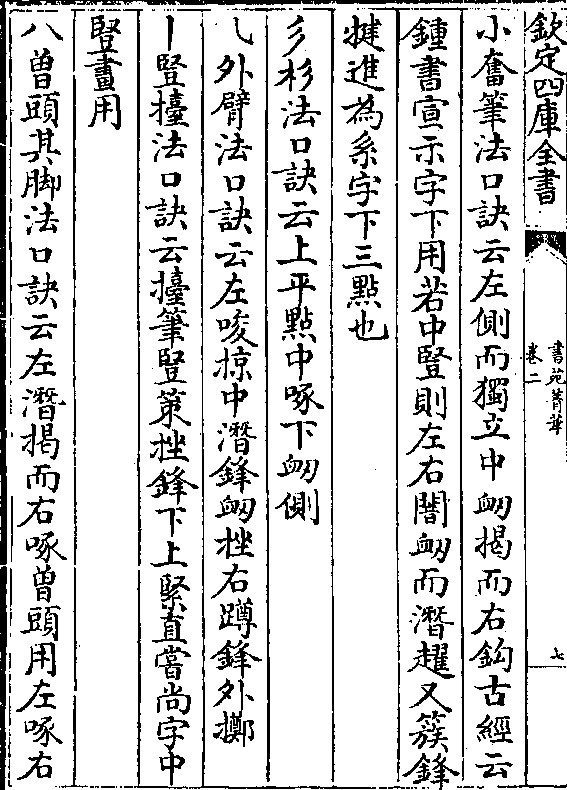 欽定四庫全書
書苑菁華
卷二
七
小奮筆法口訣云左側而獨立中衂揭而右鈎古經云
鍾書宣示字下用若中豎則左右闇衂而潛趯又簇鋒
揵進為糸字下三點也
彡杉法口訣云上平點中啄下衂側
乀外臂法口訣云左唆掠中潛鋒衂挫右蹲鋒外擲
丨豎擡法口訣云擡筆豎策挫鋒下上緊直當尚字中
豎畫用
八曽頭其脚法口訣云左潛揭而右啄曽頭用左啄右